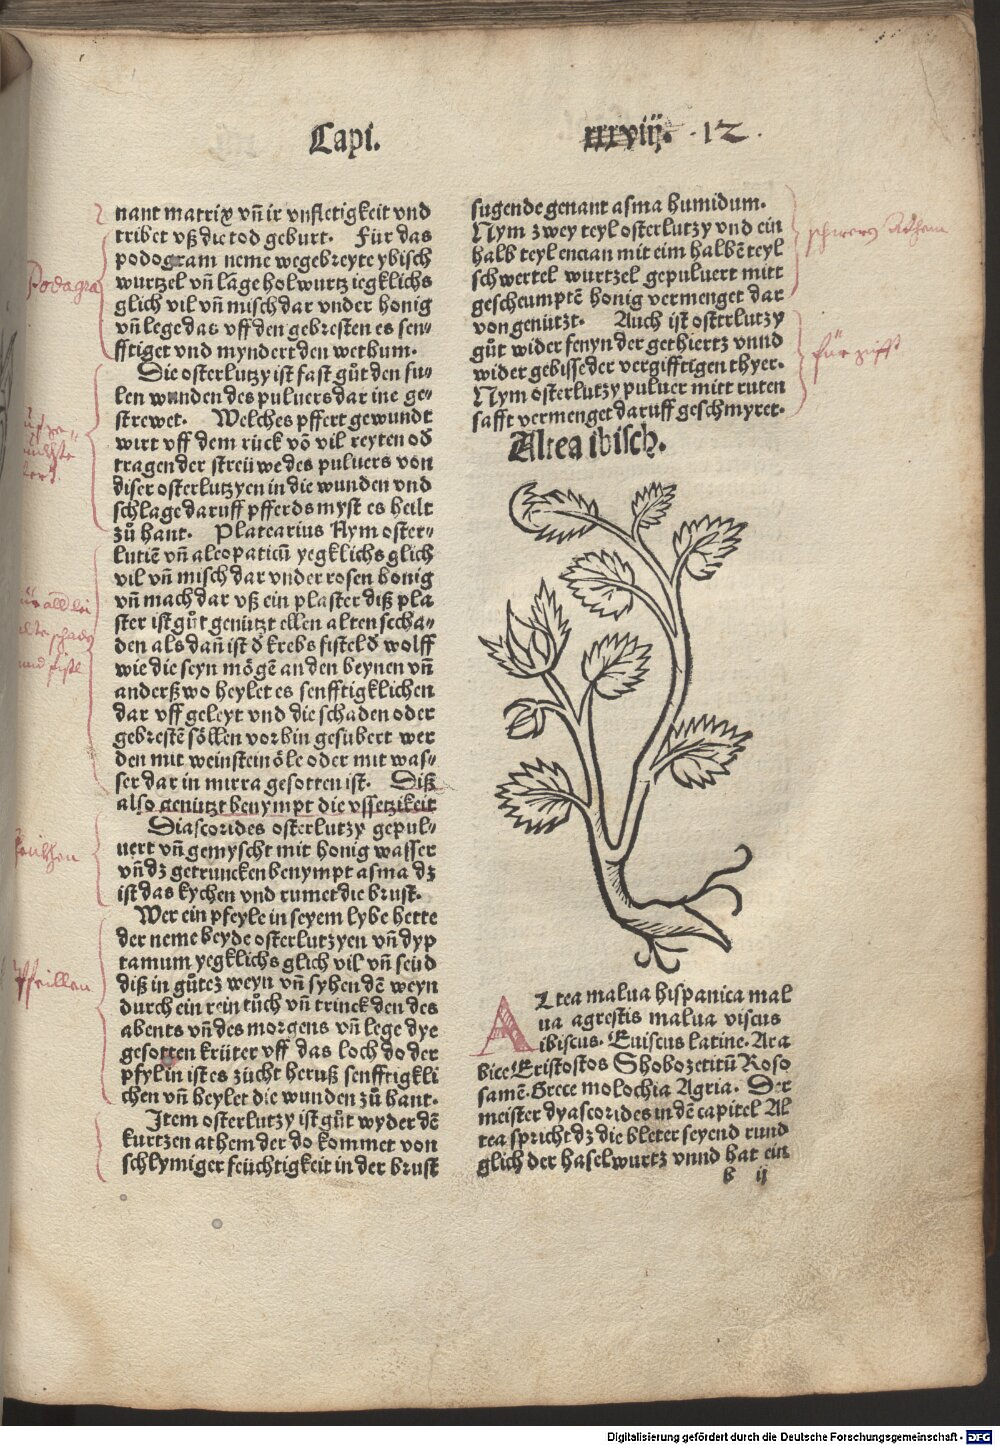 Capi. xxxviij. 12.
nant matrix vñ ir vnfletigkeit vnd
tribet vß die tod geburt. Für das
podogram neme wegebreyte ybisch
wurtzel vñ lāge holwurtz iegklichs
glich vil vñ misch dar vnder honig
vñ lege das vff den gebresten es sen⸗
fftiget vnd myndert den wethum.
Die osterlutzy ist fast gůt den fu⸗
len wunden des puluers dar ine ge⸗
strewet. Welches pffert gewundt
wirt vff dem rück võ vil reyten od
tragen der streüwe des puluers von
diser osterlutzyen in die wunden vnd
schlage daruff pfferds myst es heilt
zů hant. Platearius Nym oster⸗
lutiē vñ aleopaticū yegklichs glich
vil vñ misch dar vnder rosen honig
vñ mach dar vß ein plaster diß pla
ster ist gůt genützt ellen alten scha⸗
den als dañ ist đ krebs fistel đ wolff
wie die seyn mögē an den beynen vñ
anderßwo heylet es senfftigklichen
dar vff geleyt vnd die schaden oder
gebrestē söllen vorhin gesubert wer
den mit weinstein öle oder mit was⸗
ser dar in mirra gesotten ist. Diß
also genützt benympt die vssetzikeit
Diascorides osterlutzy gepul⸗
uert vñ gemyscht mit honig wasser
vñ dz getruncken benympt asma dz
ist das kychen vnd rumet die brust.
Wer ein pfeyle in seyem lybe hette
der neme beyde osterlutzyen vñ dyp
tamum yegklichs glich vil vñ seüd
diß in gůtez weyn vñ syhen dē weyn
durch ein rein tůch vñ trinck den des
abents vñ des morgens vñ lege dye
gesotten krüter vff das loch do der
pfyl in ist es zücht heruß senfftigkli
chen vñ heylet die wunden zů hant.
Item osterlutzy ist gůt wyder dē
kurtzen athem der do kommet von
schlymiger feüchtigkeit in der brust
sugende genant asma humidum.
Nym zwey teyl osterlutzy vnd ein
halb teyl encian mit eim halbē teyl
schwertel wurtzel gepuluert mitt
gescheumptē honig vermenget dar
von genützt. Auch ist osterlutzy
gůt wider fenyn der gethiertz vnnd
wider gebisse der vergifftigen thyer.
Nym osterlutzy puluer mitt ruten
safft vermenget daruff geschmyret.
Altea ibisch.
Altea malua hispanica mal
ua agrestis malua viscus
ibiscus. Euiscus latine. Ara
bice Eristostos Shobozetitū Roso
samē. Grece molochia Agria. Der
meister dyascorides in dē capitel Al
tea spricht dz die bleter seyend rund
glich der haselwurtz vnnd hat ein
b ij
Podagra
pfeillen
schweren Athem
für gifft
Digitalisierung gefördert durch die Deutsche Forschungsgemeinschaft - DFG